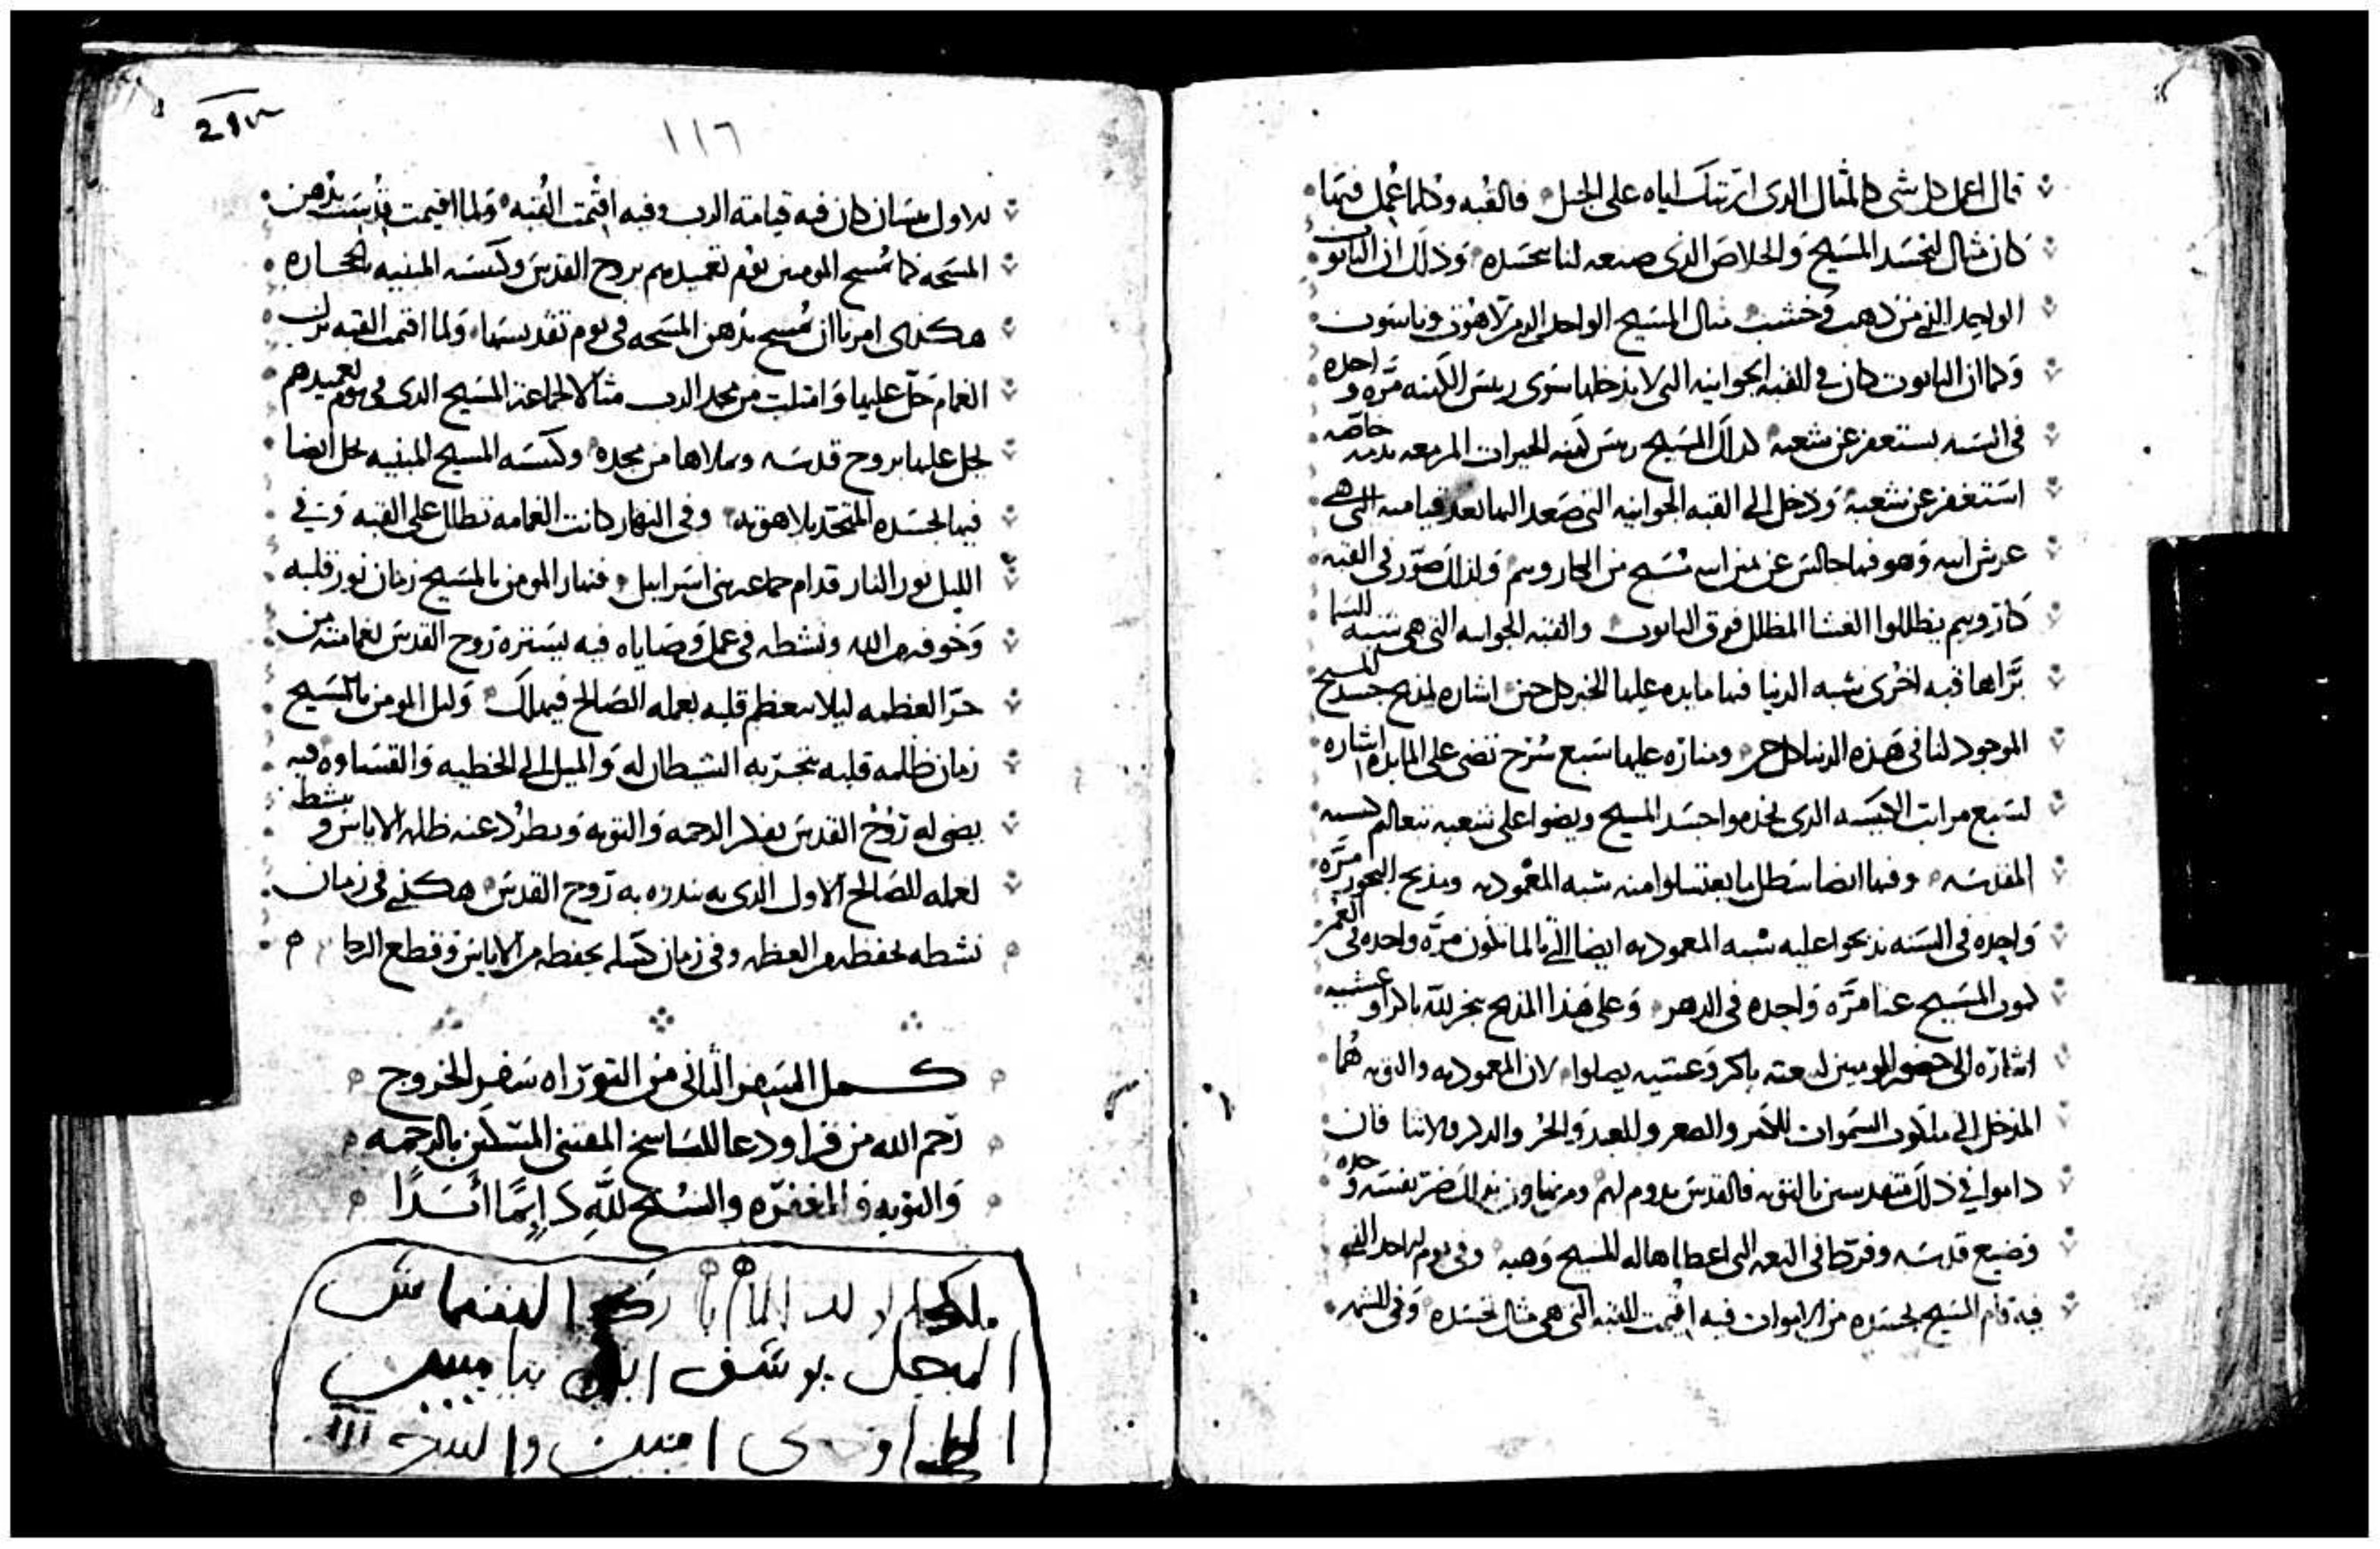 قال اعمل كل شي كالمثال الذي اريتك اياه على الجبل فالقبه وكلما عمل فيها
كان مثال لتجسد المسيح والخلاص الذي صنعه لنا بجسده وذلك ان التابوت
الواحد الذي من ذهب وخشب مثال المسيح الواحد الذي من لاهوت وناسوت
وكما ان التابوت كان في القبه الجوانيه التي لا يدخلها سوى ريس الكهنه مره واحده
في السنه يستغفر عن شعبه كذلك المسيح ريس كهنه الخيرات المزمعه بدمه خاصه
استغفر عن شعبه ودخل الى القبه الجوانيه التي صعد اليها بعد قيامته التي هي
عرش ابيه وهو فيها جالس عن يمين ابيه يسبح من الكاروبيم ولذلك صور في القبه
كاروبيم يظللوا الغشا المظلل فوق التابوت والقبه الجوانيه التي هي شبه السما
براها قبه اخرى شبه الدنيا فيها مايده عليها الخبز كل حين اشاره لمذبح جسد المسيح
الموجود لنا في هذه الدنيا كل حين ومناره عليها سبع سرج تضي على المايده اشاره
لسبع مراتب الكنيسه الذي يخدموا جسد المسيح ويضوا على شعبه بتعاليم كنيسته
المقدسه وفيها ايضا سطل ما يغتسلوا منه شبه المعموديه ومذبح البخور مره
واحده في السنه يذبحوا عليه شبه المعموديه ايضا التي انما تكون مره واحده في العمر
كموت المسيح عنا مره واحده في الدهر وعلى هذا المذبح بخر لله باكر وعشيه
اشاره الى حضور المومنين لبيعته باكر وعشيه يصلوا لان المعموديه والتوبه هما
المدخل الى ملكوت السموات للكبير والصغير وللعبد والحر والذكر والانثا فان
داموا في ذلك متقدسين بالتوبه فالقدس يدوم لهم ومن تهاون بذلك ضر نفسه وحده
وضيع قدسه وفرط في النعمه التي اعطاها له المسيح وهبه وفي يوم الاحد الذي
فيه قام المسيح بجسده من الاموات فيه اقيمت القبه التي هي مثال تجسده وفي الشهر
١١٦
الاول نيسان كان فيه قيامة الرب وفيه اقيمت القبه ولما اقيمت قدست بدهن
المسحه كما يمسح المومنين يوم تعميدهم بروح القدس وكنيسه المبنيه بالحجاره
هكذى امرنا ان تمسح بدهن المسحه في يوم تقديسها ولما اقيمت القبه نزل
الغمام حل عليها وامتلت من مجد الرب مثالا لجماعة المسيح الذي في يوم تعميدهم
يحل عليها بروح قدسه ويملاها من مجده وكنيسه المسيح المبنيه يحل ايضا
فيها بجسده المتحد بلاهوته وفي النهار كانت الغمامه تظلل على القبه وفي
الليل نور النار قدام جماعه بني اسراييل فنهار المومن بالمسيح زمان نور قلبه
وخوفه من الله ونشطه في عمل وصاياه فيه يستره روح القدس بغمامته من
حر العظمه ليلا يتعظم قلبه بعمله الصالح فيهلك وليل المومن بالمسيح
زمان ظلمه قلبه بتجربه الشيطان له والميل الى الخطيه والقساوه فيه
يضي له روح القدس بفكر الرحمه والتوبه ويطرد عنه ظلمه الاياس وينشط
لعمله الصالح الاول الذي به ينذره به روح القدس هكذى في زمان
نشطه يحفظه من العظمه وفي زمان كسله يحفظه من الاياس وقطع الرجا
كمل السفر الثاني من التوراه سفر الخروج
رحم الله من قرا ودعا للناسخ المقتني المسكين بالرحمه
والتوبه والمغفره والسبح لله دايما ابدا
المبجل يوسف ابن بنيامين
امين والسبح لله